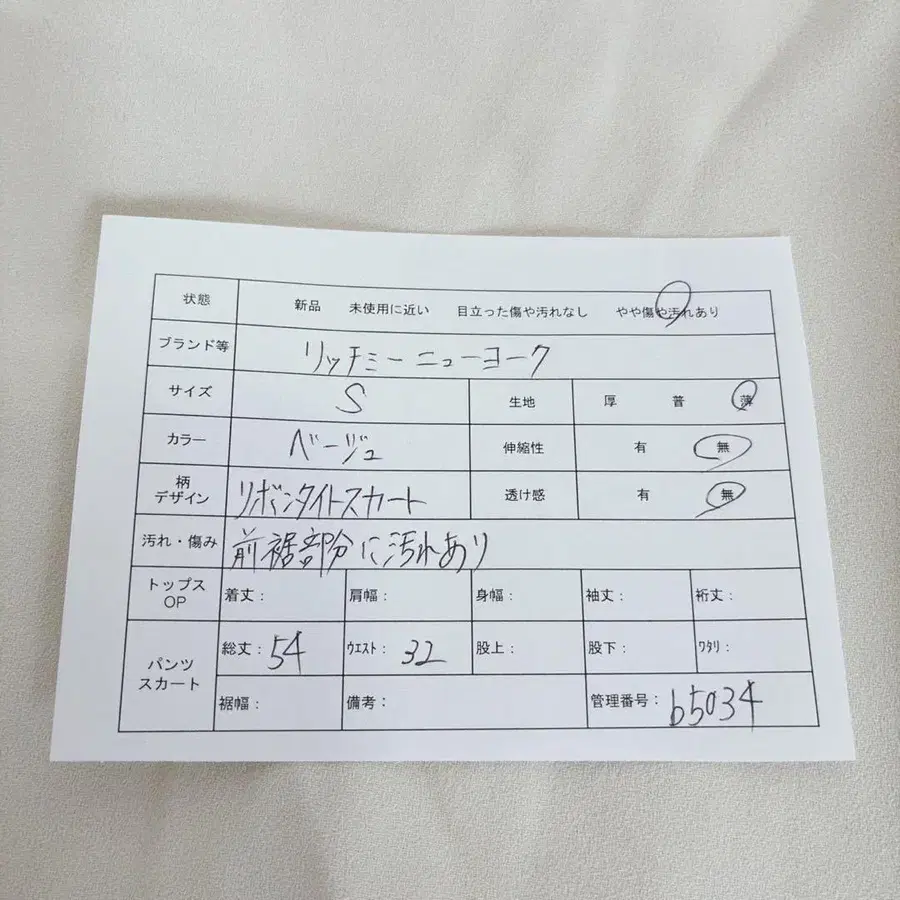 状態 新品 未使用に近い 目立った傷や汚れなし やや傷や汚れあり
ブランド等 リッチミーニューヨーク
サイズ S 生地 厚 普 薄
カラー ベージュ 伸縮性 有 無
柄
デザイン リボンタイトスカート 透け感 有 無
汚れ・傷み 前裾部分に汚れあり
トップス
OP 着丈: 肩幅: 身幅: 袖丈: 裄丈:
パンツ
スカート 総丈:54 ウエスト:32 股上: 股下: ワタリ:
裾幅: 備考: 管理番号:b5034